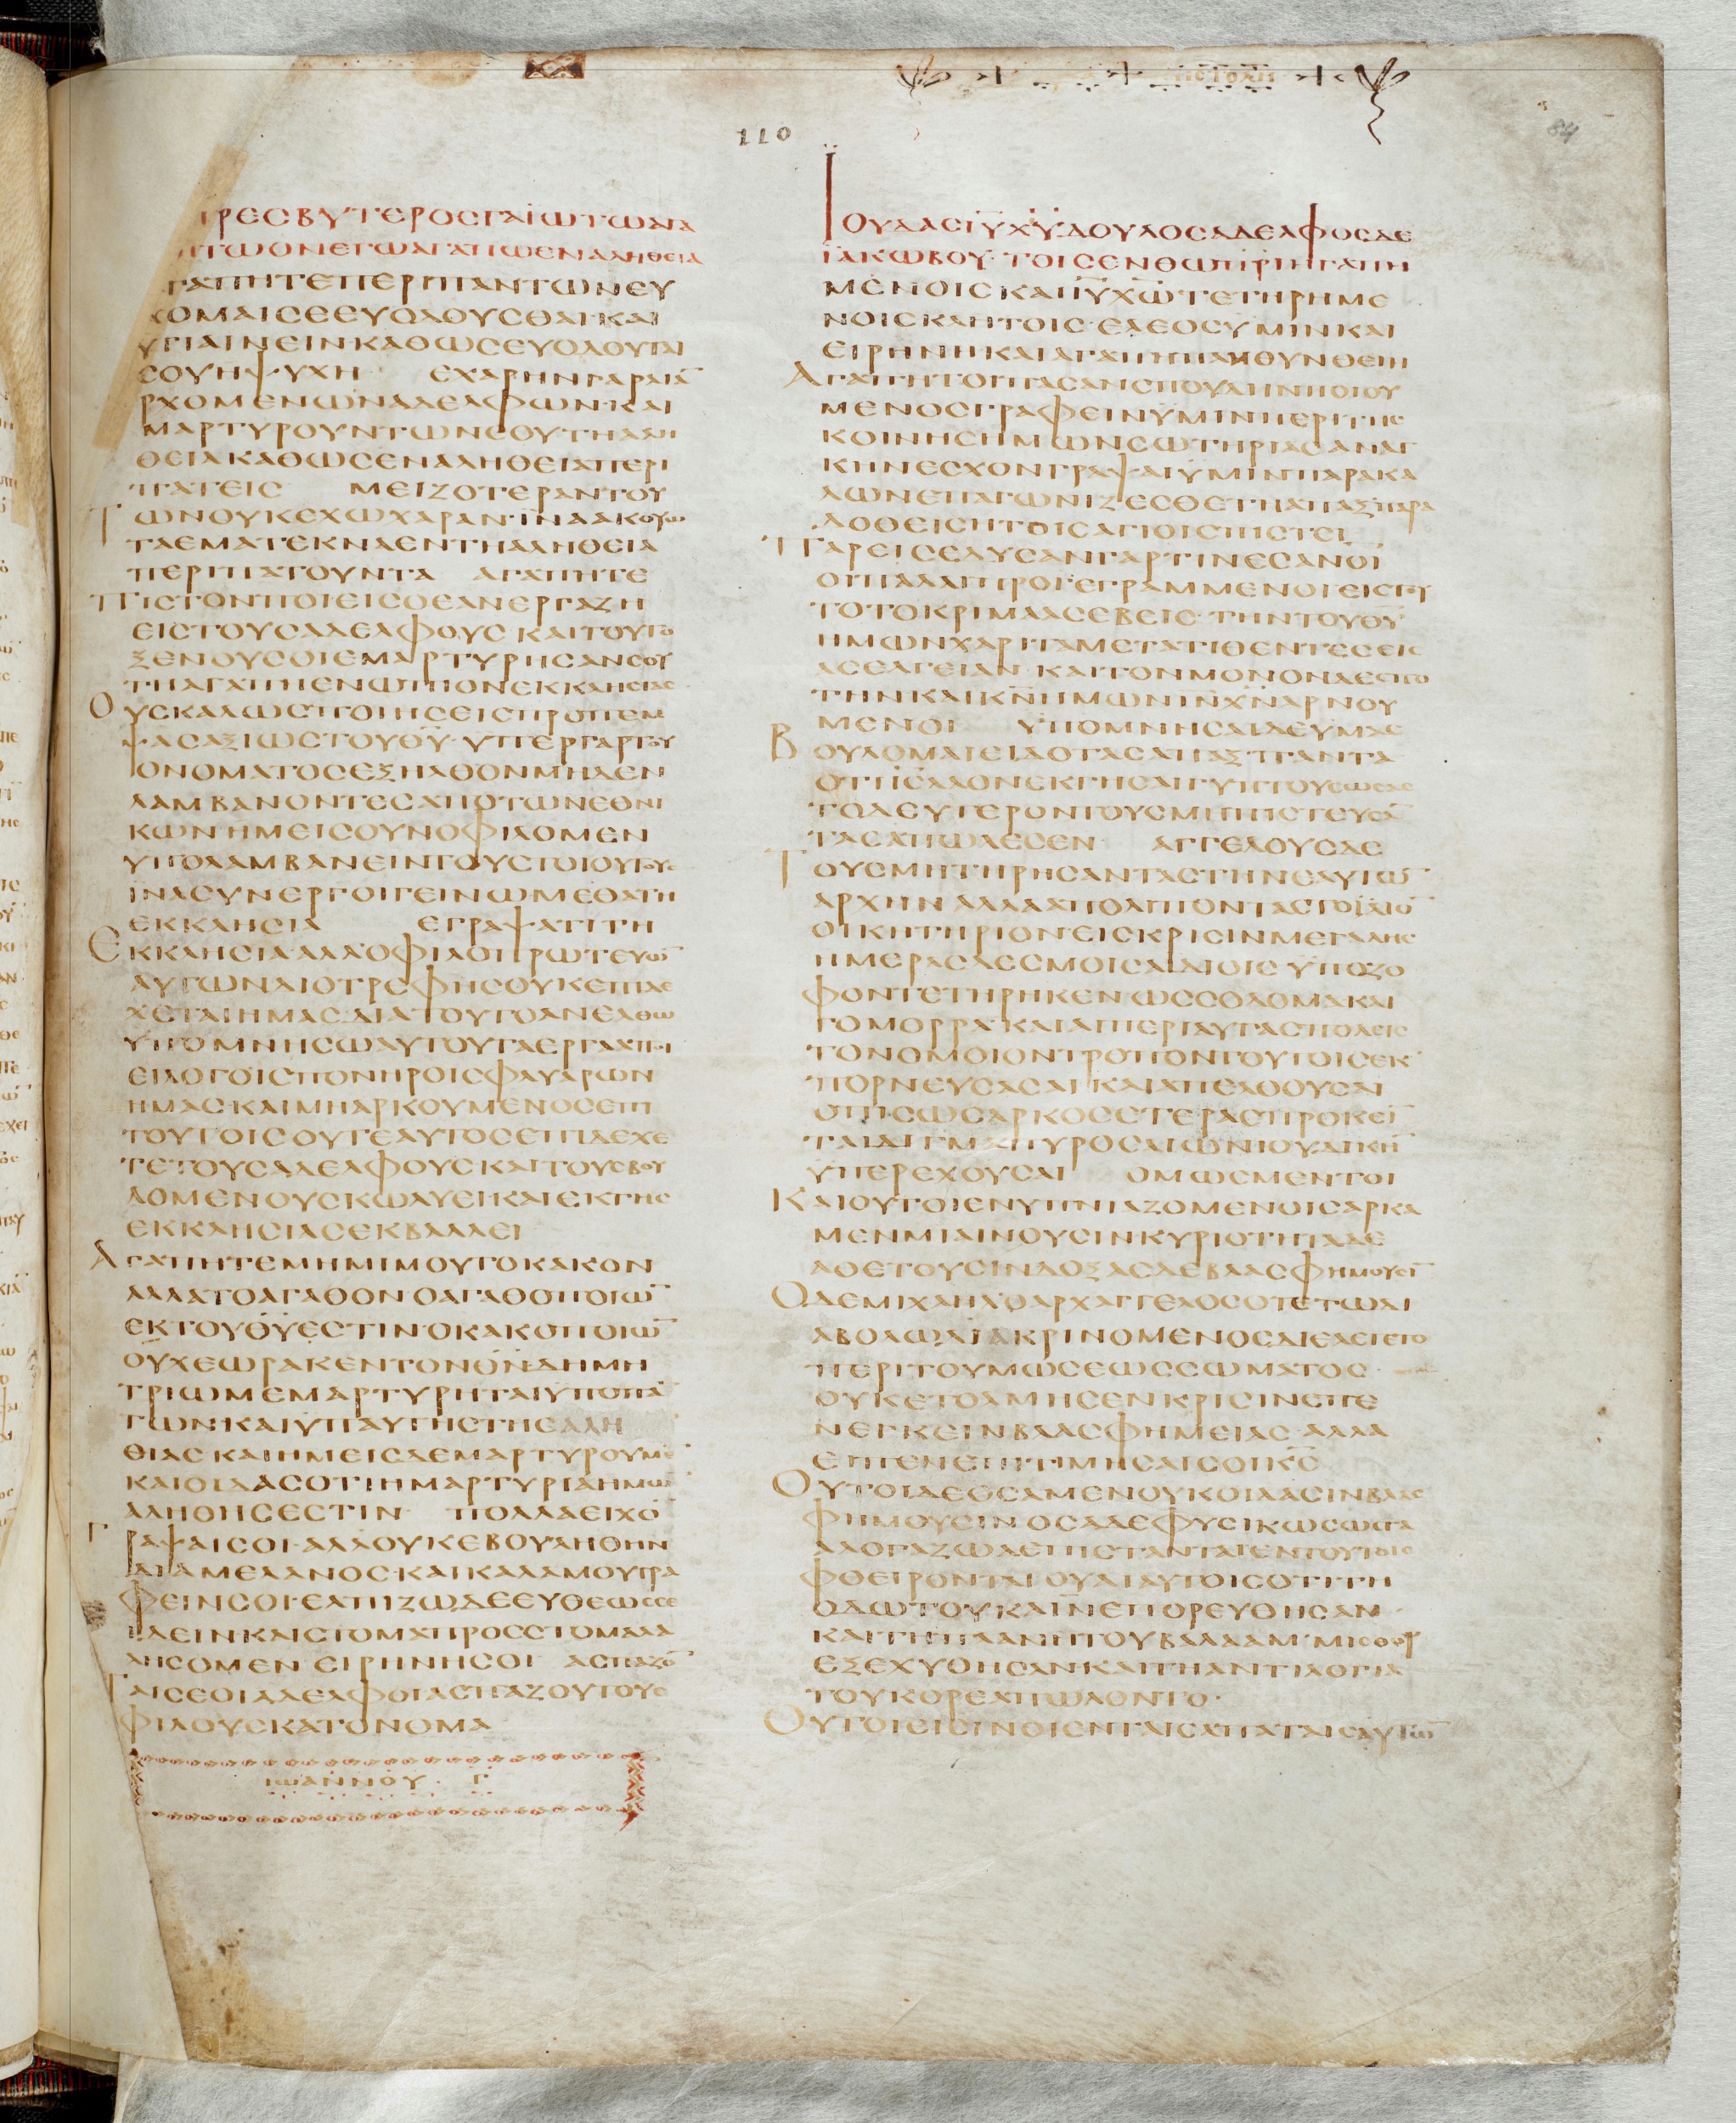 110
84
ΠΡΕΣΒΥΤΕΡΟΣΓΑΪΩΤΩΑΓΑ
ΠΗΤΩΟΝΕΓΩΑΓΑΠΩΕΝΑΛΗΘΕΙΑ
ΓΑΠΗΤΕΠΕΡΙΠΑΝΤΩΝΕΥ
ΧΟΜΑΙΣΕΕΥΟΔΟΥΣΘΑΙ·ΚΑΙ
ΥΓΙΑΙΝΕΙΝΚΑΘΩΣΕΥΟΔΟΥΤΑΙ
ΣΟΥΗΨΥΧΗ ΕΧΑΡΗΝΓΑΡΛΙΑ̅
ΡΧΟΜΕΝΩΝΑΔΕΛΦΩΝ·ΚΑΙ
ΜΑΡΤΥΡΟΥΝΤΩΝΣΟΥΤΗΑΛΗ
ΘΕΙΑΚΑΘΩΣΕΝΑΛΗΘΕΙΑΠΕΡΙ
ΠΑΤΕΙΣ ΜΕΙΖΟΤΕΡΑΝΤΟΥ
ΤΩΝΟΥΚΕΧΩΧΑΡΑΝ·ΪΝΑΑΚΟΥΩ
ΤΑΕΜΑΤΕΚΝΑΕΝΤΗΑΛΗΘΕΙΑ
ΠΕΡΙΠΑΤΟΥΝΤΑ ΑΓΑΠΗΤΕ
ΠΙΣΤΟΝΠΟΙΕΙΣΟΕΑΝΕΡΓΑΖΗ
ΕΙΣΤΟΥΣΑΔΕΛΦΟΥΣ ΚΑΙΤΟΥΤΟ
ΞΕΝΟΥΣΟΙΕΜΑΡΤΥΡΗΣΑΝΣΟΥ
ΤΗΑΓΑΠΗΕΝΩΠΙΟΝΕΚΚΛΗΣΙΑΣ
ΟΥΣΚΑΛΩΣΠΟΙΗΣΕΙΣΠΡΟΠΕΜ
ΨΑΣΑΞΙΩΣΤΟΥΘΥ̅·ΥΠΕΡΓΑΡΤΟΥ
ΟΝΟΜΑΤΟΣΕΞΗΛΘΟΝΜΗΔΕΝ
ΛΑΜΒΑΝΟΝΤΕΣΑΠΟΤΩΝΕΘΝΙ
ΚΩΝ·ΗΜΕΙΣΟΥΝΟΦΙΛΟΜΕΝ
ΥΠΟΛΑΜΒΑΝΕΙΝΤΟΥΣΤΟΙΟΥΤΟΥΣ
ΪΝΑΣΥΝΕΡΓΟΙΓΕΙΝΩΜΕΘΑΤΗ
ΕΚΚΛΗΣΙΑ ΕΓΡΑΨΑΤΙΤΗ
ΕΚΚΛΗΣΙΑ·ΑΛΛΟΦΙΛΟΠΡΩΤΕΥΩ̅
ΑΥΤΩΝΔΙΟΤΡΕΦΗΣΟΥΚΕΠΙΔΕ
ΧΕΤΑΙΗΜΑΣ·ΔΙΑΤΟΥΤΟΑΝΕΛΘΩ
ΥΠΟΜΝΗΣΩΑΥΤΟΥΤΑΕΡΓΑΑΠΟΙ
ΕΙΛΟΓΟΙΣΠΟΝΗΡΟΙΣΦΛΥΑΡΩΝ
ΗΜΑΣ·ΚΑΙΜΗΑΡΚΟΥΜΕΝΟΣΕΠΙ
ΤΟΥΤΟΙΣΟΥΤΕΑΥΤΟΣΕΠΙΔΕΧΕ
ΤΕΤΟΥΣΑΔΕΛΦΟΥΣΚΑΙΤΟΥΣΒΟΥ
ΛΟΜΕΝΟΥΣΚΩΛΥΕΙΚΑΙΕΚΤΗΣ
ΕΚΚΛΗΣΙΑΣΕΚΒΑΛΛΕΙ
ΑΓΑΠΗΤΕΜΗΜΙΜΟΥΤΟΚΑΚΟΝ
ΑΛΛΑΤΟΑΓΑΘΟΝΟΑΓΑΘΟΠΟΙΩ̅
ΕΚΤΟΥΘΥ̅ΕΣΤΙΝ·ΟΚΑΚΟΠΟΙΩ̅
ΟΥΧΕΩΡΑΚΕΝΤΟΝΘΝ̅ΔΗΜΗ
ΤΡΙΩΜΕΜΑΡΤΥΡΗΤΑΙΥΠΟΠΑ̅
ΤΩΝ·ΚΑΙΫΠΑΥΤΗΣΤΗΣΑΛΗ
ΘΙΑΣΚΑΙΗΜΕΙΣΔΕΜΑΡΤΥΡΟΥΜΕ̅
ΚΑΙΟΙΔΑΣΟΤΙΗΜΑΡΤΥΡΙΑΗΜΩ̅
ΑΛΗΘΗΣΕΣΤΙΝ ΠΟΛΛΑΕΙΧΟ̅
ΓΡΑΨΑΙΣΟΙ·ΑΛΛΟΥΚΕΒΟΥΛΗΘΗΝ
ΔΙΑΜΕΛΑΝΟΣΚΑΙΚΑΛΑΜΟΥΓΡΑ
ΦΕΙΝΣΟΙ·ΕΛΠΙΖΩΔΕΕΥΘΕΩΣΣΕ
ΪΔΕΙΝΚΑΙΣΤΟΜΑΠΡΟΣΣΤΟΜΑΛΑ
ΛΗΣΟΜΕΝ ΕΙΡΗΝΗΣΟΙ ΑΣΠΑΖΟ̅
ΤΑΙΣΕΟΙΑΔΕΛΦΟΙΑΣΠΑΖΟΥΤΟΥΣ
ΦΙΛΟΥΣΚΑΤΟΝΟΜΑ
ΙΩΑΝΝΟΥ · Γ
ΪΟΥΔΑΣΙΥ̅ΧΥ̅ΔΟΥΛΟΣΑΔΕΛΦΟΣΔΕ
ΪΑΚΩΒΟΥ·ΤΟΙΣΕΝΘΩΠΡΙΗΓΑΠΗ
ΜΕΝΟΙΣΚΑΙΙΥ̅ΧΩ̅ΤΕΤΗΡΗΜΕ
ΝΟΙΣΚΛΗΤΟΙΣ·ΕΛΕΟΣΥΜΙΝΚΑΙ
ΕΙΡΗΝΗΚΑΙΑΓΑΠΗΠΛΗΘΥΝΘΕΙΗ
ΑΓΑΠΗΤΟΙΠΑΣΑΝΣΠΟΥΔΗΝΠΟΙΟΥ
ΜΕΝΟΣΓΡΑΦΕΙΝΫΜΙΝΠΕΡΙΤΗΣ
ΚΟΙΝΗΣΗΜΩΝΣΩΤΗΡΙΑΣΑΝΑΓ
ΚΗΝΕΣΧΟΝΓΡΑΨΑΙΫΜΙΝΠΑΡΑΚΑ
ΛΩΝΕΠΑΓΩΝΙΖΕΣΘΕΤΗΑΠΑΞΠΑΡΑ
ΔΟΘΕΙΣΗΤΟΙΣΑΓΙΟΙΣΠΙΣΤΕΙ
ΠΑΡΕΙΣΕΔΥΣΑΝΓΑΡΤΙΝΕΣΑΝΟΙ̅
ΟΙΠΑΛΑΙΠΡΟΓΕΓΡΑΜΜΕΝΟΙΕΙΣΤΟΥ
ΤΟΤΟΚΡΙΜΑΑΣΕΒΕΙΣ·ΤΗΝΤΟΥΘΥ̅
ΗΜΩΝΧΑΡΙΤΑΜΕΤΑΤΙΘΕΝΤΕΣΕΙΣ
ΑΣΕΛΓΕΙΑΝ·ΚΑΙΤΟΝΜΟΝΟΝΔΕΣΠΟ
ΤΗΝΚΑΙΚΝ̅ΗΜΩΝΙΝ̅ΧΝ̅ΑΡΝΟΥ
ΜΕΝΟΙ ΫΠΟΜΝΗΣΑΙΔΕΥΜΑΣ
ΒΟΥΛΟΜΑΙΕΙΔΟΤΑΣΑΠΑΞΠΑΝΤΑ
ΟΤΙΙΣ̅ΛΑΟΝΕΚΓΗΣΑΙΓΥΠΤΟΥΣΩΣΑΣ
ΤΟΔΕΥΤΕΡΟΝΤΟΥΣΜΗΠΙΣΤΕΥΣΑ̅
ΤΑΣΑΠΩΛΕΣΕΝ· ΑΓΓΕΛΟΥΣΔΕ
ΤΟΥΣΜΗΤΗΡΗΣΑΝΤΑΣΤΗΝΕΑΥΤΩ̅
ΑΡΧΗΝΑΛΛΑΑΠΟΛΙΠΟΝΤΑΣΤΟΙΔΙΟ̅
ΟΙΚΗΤΗΡΙΟΝΕΙΣΚΡΙΣΙΝΜΕΓΑΛΗΣ
ΗΜΕΡΑΣΔΕΣΜΟΙΣΑΙΔΙΟΙΣΫΠΟΖΟ
ΦΟΝΤΕΤΗΡΗΚΕΝΩΣΣΟΔΟΜΑΚΑΙ
ΓΟΜΟΡΡΑ·ΚΑΙΑΙΠΕΡΙΑΥΤΑΣΠΟΛΕΙΣ
ΤΟΝΟΜΟΙΟΝΤΡΟΠΟΝΤΟΥΤΟΙΣΕΚ
ΠΟΡΝΕΥΣΑΣΑΙ ΚΑΙΑΠΕΛΘΟΥΣΑΙ
ΟΠΙΣΩΣΑΡΚΟΣΕΤΕΡΑΣΠΡΟΚΕΙ̅
ΤΑΙΔΙΓΜΑΠΥΡΟΣΑΙΩΝΙΟΥΔΙΚΗ̅
ΥΠΕΡΕΧΟΥΣΑΙ ΟΜΩΣΜΕΝΤΟΙ
ΚΑΙΟΥΤΟΙΕΝΥΠΝΙΑΖΟΜΕΝΟΙΣΑΡΚΑ
ΜΕΝΜΙΑΙΝΟΥΣΙΝΚΥΡΙΟΤΗΤΑΔΕ
ΑΘΕΤΟΥΣΙΝΔΟΞΑΣΔΕΒΛΑΣΦΗΜΟΥΣΙ̅
ΟΔΕΜΙΧΑΗΛΟΑΡΧΑΓΓΕΛΟΣΟΤΕΤΩΔΙ
ΑΒΟΛΩΔΙΑΚΡΙΝΟΜΕΝΟΣΔΙΕΛΕΓΕΤΟ
ΠΕΡΙΤΟΥΜΩΣΕΩΣΣΩΜΑΤΟΣ·
ΟΥΚΕΤΟΛΜΗΣΕΝΚΡΙΣΙΝΕΠΕ
ΝΕΓΚΕΙΝΒΛΑΣΦΗΜΕΙΑΣ·ΑΛΛΑ
ΕΙΠΕΝΕΠΙΤΙΜΗΣΑΙΣΟΙΚΣ̅
ΟΥΤΟΙΔΕΟΣΑΜΕΝΟΥΚΟΙΔΑΣΙΝΒΛΑΣ
ΦΗΜΟΥΣΙΝ·ΟΣΑΔΕΦΥΣΙΚΩΣΩΣΤΑ
ΑΛΟΓΑΖΩΑΕΠΙΣΤΑΝΤΑΙΕΝΤΟΥΤΟΙΣ
ΦΘΕΙΡΟΝΤΑΙ ΟΥΑΙΑΥΤΟΙΣΟΤΙΤΗ
ΟΔΩΤΟΥΚΑΪΝΕΠΟΡΕΥΘΗΣΑΝ·
ΚΑΙΤΗΠΛΑΝΗΤΟΥΒΑΛΑΑΜ·ΜΙΣΘΟΥ
ΕΞΕΧΥΘΗΣΑΝΚΑΙΤΗΑΝΤΙΛΟΓΙΑ
ΤΟΥΚΟΡΕΑΠΩΛΟΝΤΟ·
ΟΥΤΟΙΕΙΣΙΝΟΙΕΝΤΑΙΣΑΠΑΤΑΙΣΑΥΤΩ̅